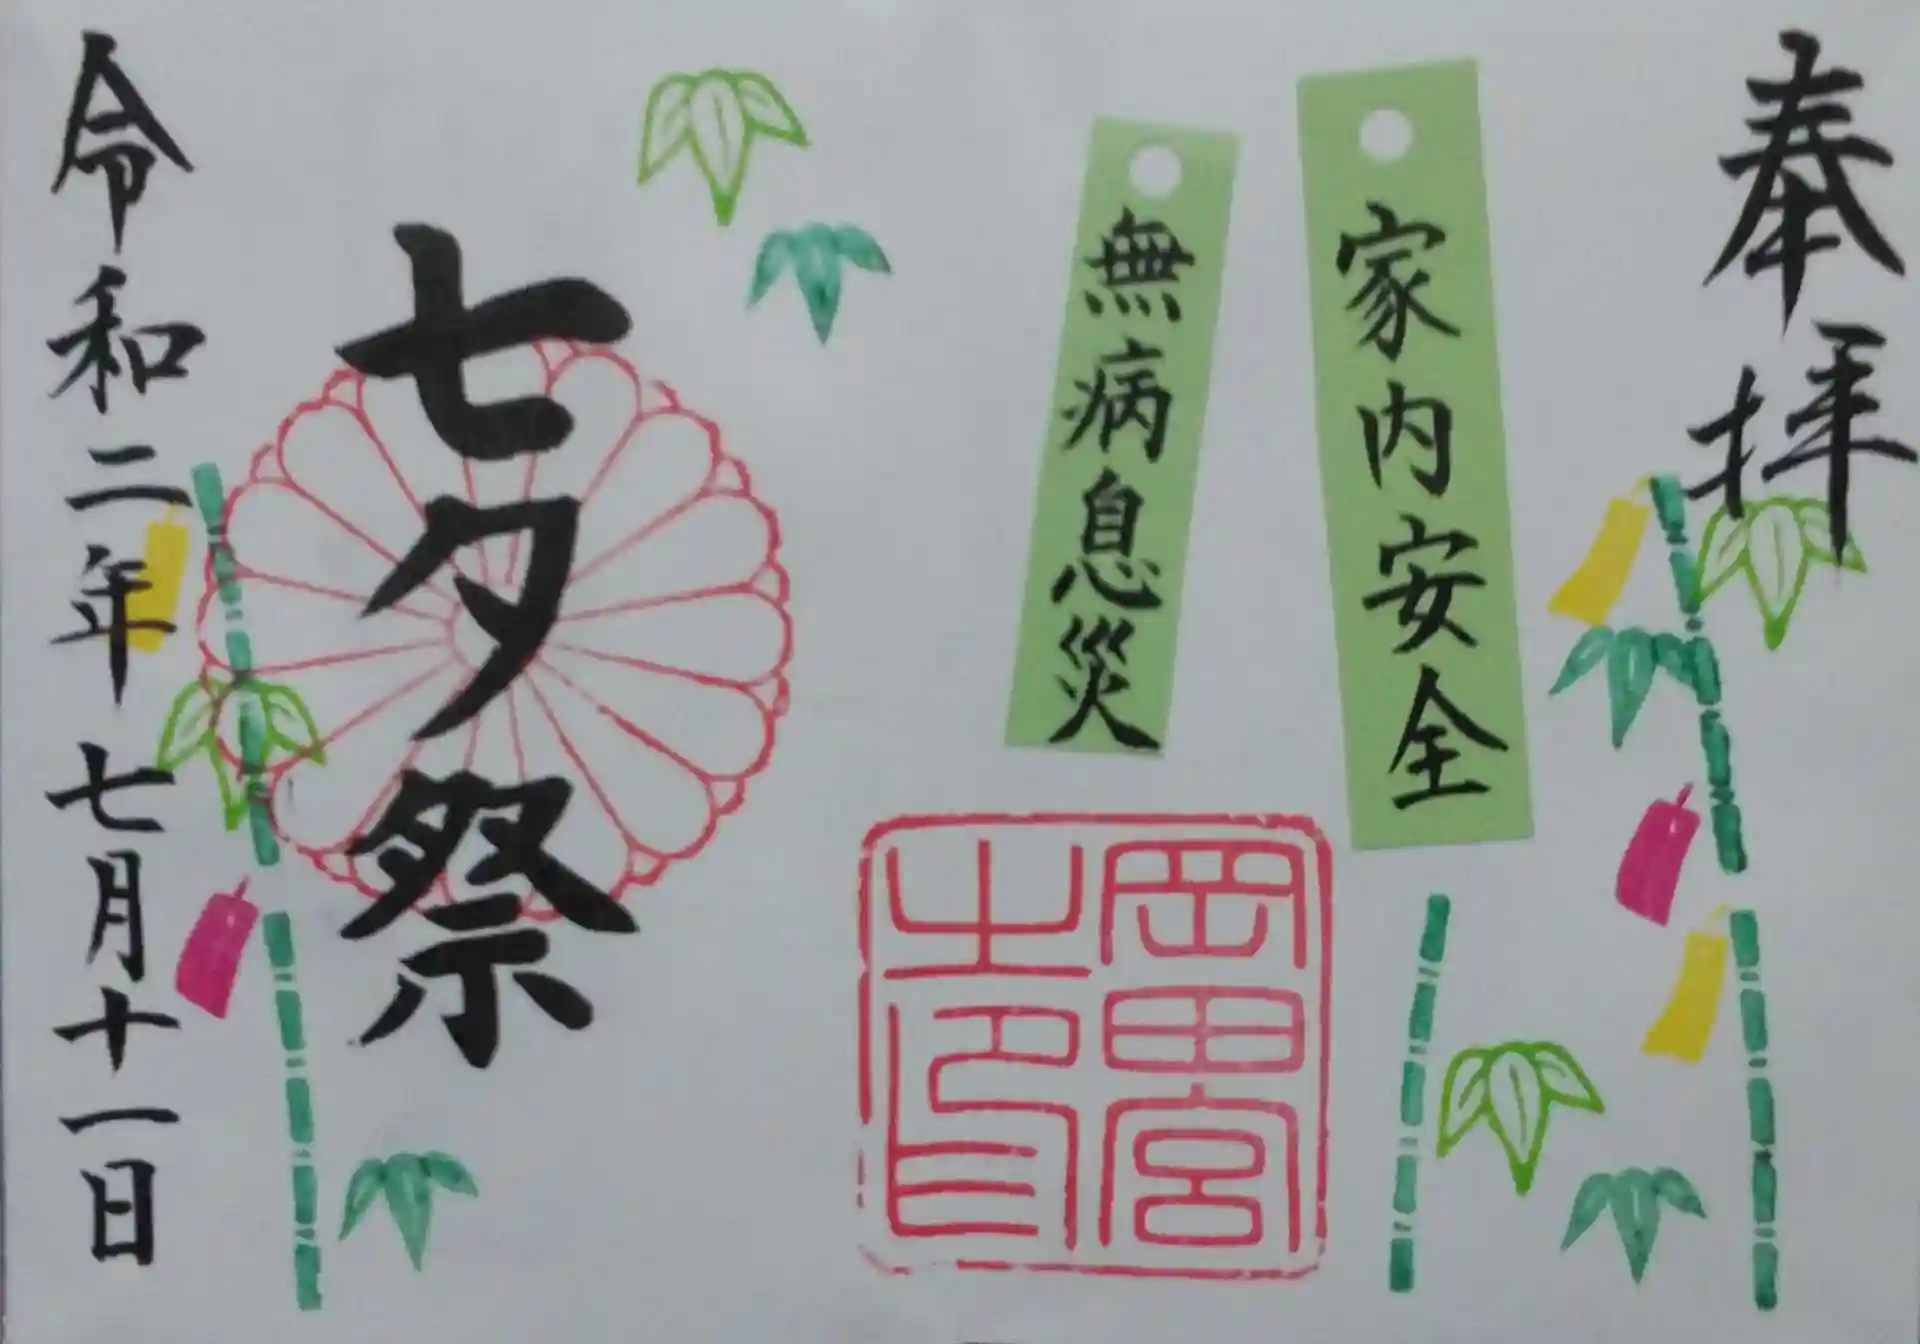 奉拝
家内安全
無病息災
岡田宮
之印
七夕祭
令和二年七月十一日